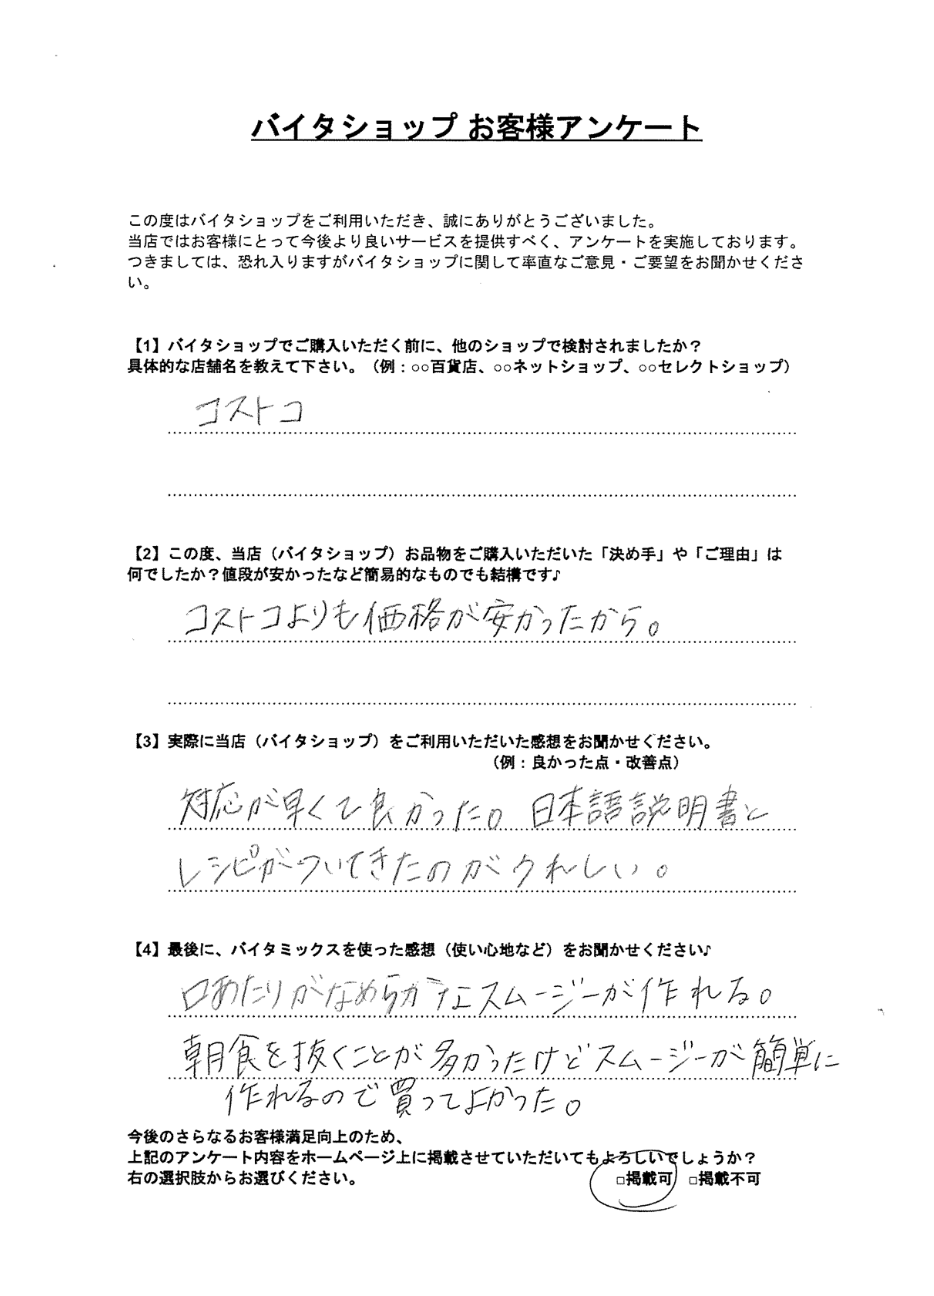 バイタショップ お客様アンケート
この度はバイタショップをご利用いただき、誠にありがとうございました。
当店ではお客様にとって今後より良いサービスを提供すべく、アンケートを実施しております。
つきましては、恐れ入りますがバイタショップに関して率直なご意見・ご要望をお聞かせくださ
い。
【1】バイタショップでご購入いただく前に、他のショップで検討されましたか？
具体的な店舗名を教えて下さい。（例：○○百貨店、○○ネットショップ、○○セレクトショップ）
コストコ
【2】この度、当店（バイタショップ）お品物をご購入いただいた「決め手」や「ご理由」は
何でしたか？値段が安かったなど簡易的なものでも結構です♪
コストコよりも価格が安かったから。
【3】実際に当店（バイタショップ）をご利用いただいた感想をお聞かせください。
（例：良かった点・改善点）
対応が早くて良かった。日本語説明書と
レシピがついてきたのがうれしい。
【4】最後に、バイタミックスを使った感想（使い心地など）をお聞かせください♪
口あたりがなめらかなスムージーが作れる。
朝食を抜くことが多かったけどスムージーが簡単に
作れるので買ってよかった。
今後のさらなるお客様満足向上のため、
上記のアンケート内容をホームページ上に掲載させていただいてもよろしいでしょうか？
右の選択肢からお選びください。 □掲載可 □掲載不可